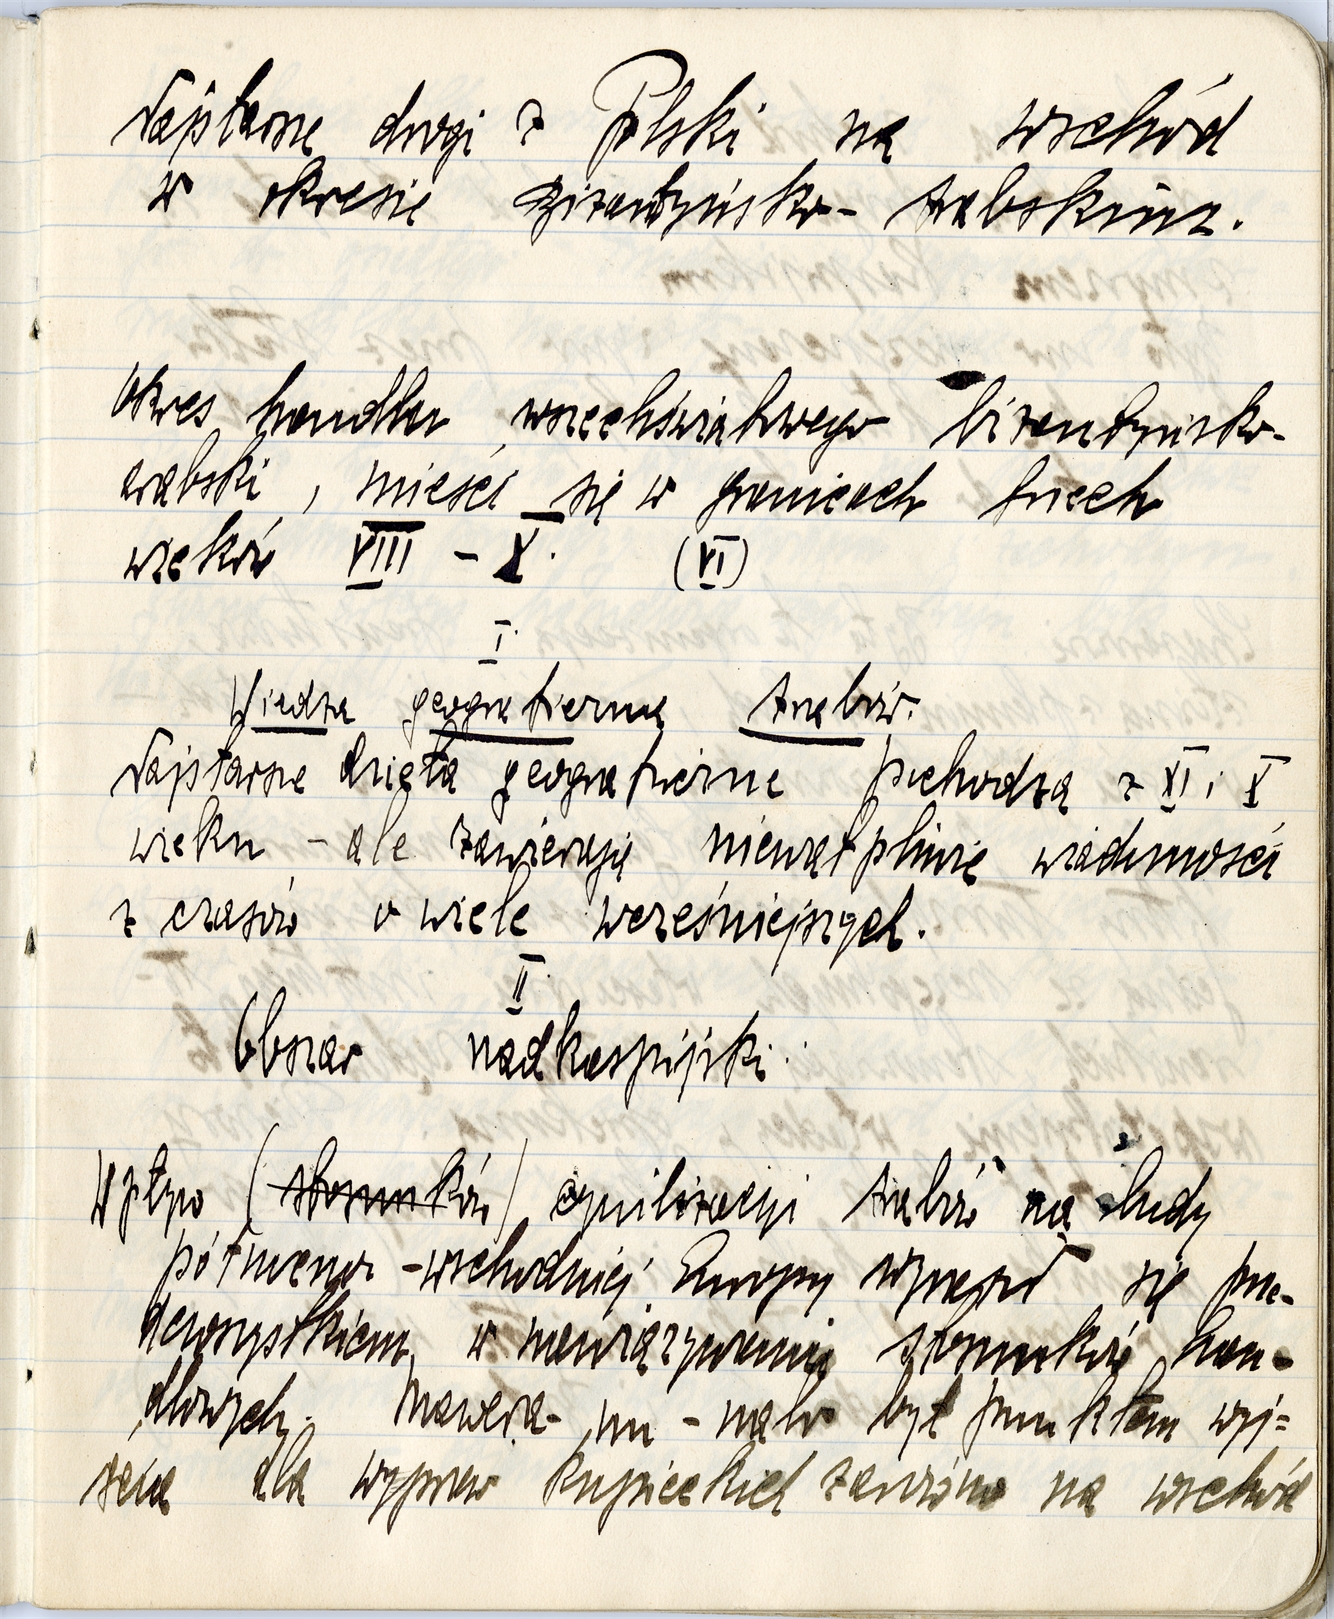 Najstarsze drogi z Polski na wschód
w okresie bizantyńsko-arabskim.
Okres handlu wszechświatowego bizantyńsko-
arabski, mieści się w granicach trzech
wieków VIII – X. (VI)
I.
Wiedza geograficzna Arabów.
Najstarsze dzieła geograficzne pochodzą z XI i X
wieku – ale zawierają niewątpliwie wiadomości
z czasów o wiele wcześniejszych.
II
Obszar nadkaspijski.
Wpływ (stosunków) cywilizacji Arabów na ludy
północno-wschodniej Europy wyraził się prze-
dewszystkiem w nawiązywaniu stosunków han-
dlowych. Mawera-nn-nahr był punktem wyj-
ścia dla wypraw kupieckich zarówno na wschód